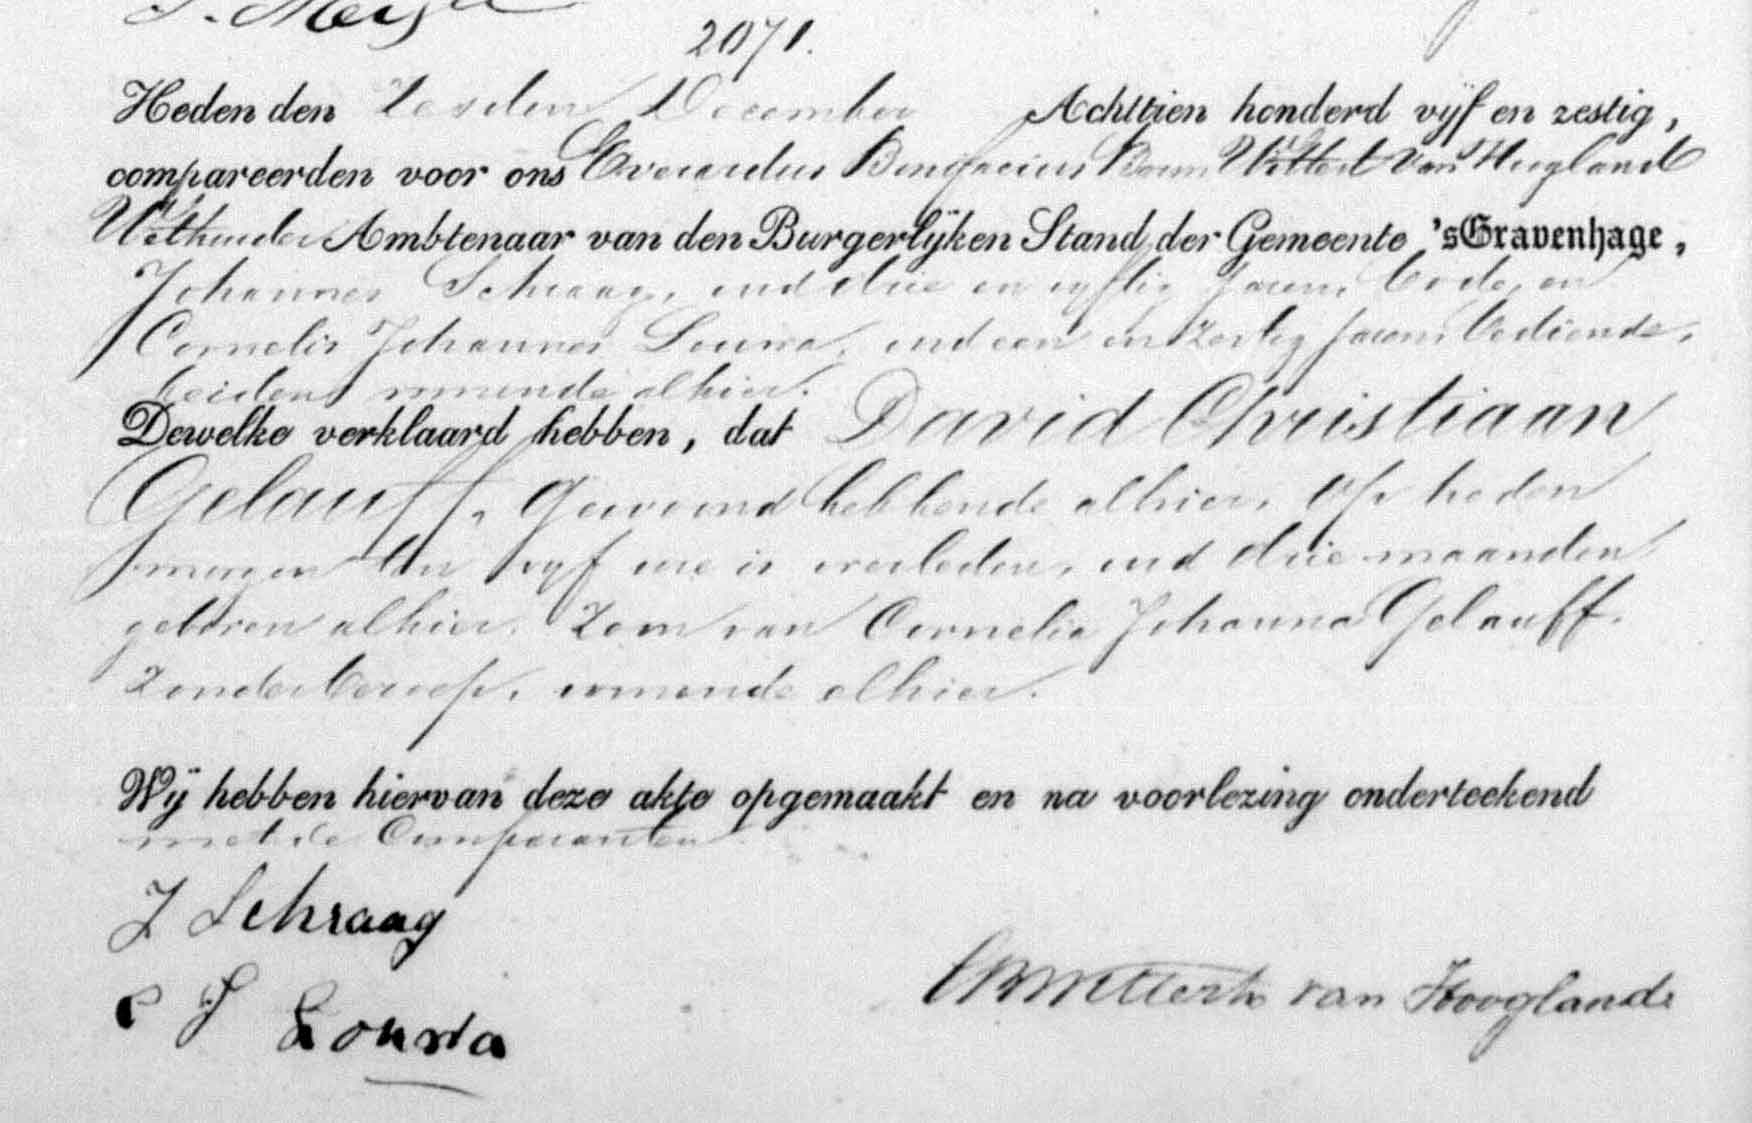 2071.
Heden den Zesden December Achttien honderd vijf en zestig,
compareerden voor ons Everardus Bonifacius Wittert van Hoogland
Wethouder Ambtenaar van den Burgerlijken Stand der Gemeente 'sGravenhage,
Johannes Schraag, oud drie en vijftig jaren, bode, en
Cornelis Johannes Lourra, oud een en zestig jaren bediende,
beiden wonende alhier.
Dewelke verklaard hebben, dat David Christiaan
Gelauff, gewoond hebbende alhier, op heden
morgen ten vijf ure is overleden, oud drie maanden
geboren alhier. Zoon van Cornelia Johanna Gelauff.
Zonder beroep, wonende alhier.
Wij hebben hiervan deze akte opgemaakt en na voorlezing onderteekend
met de Comparanten
J Schraag
C J Lourra
van Hoogland